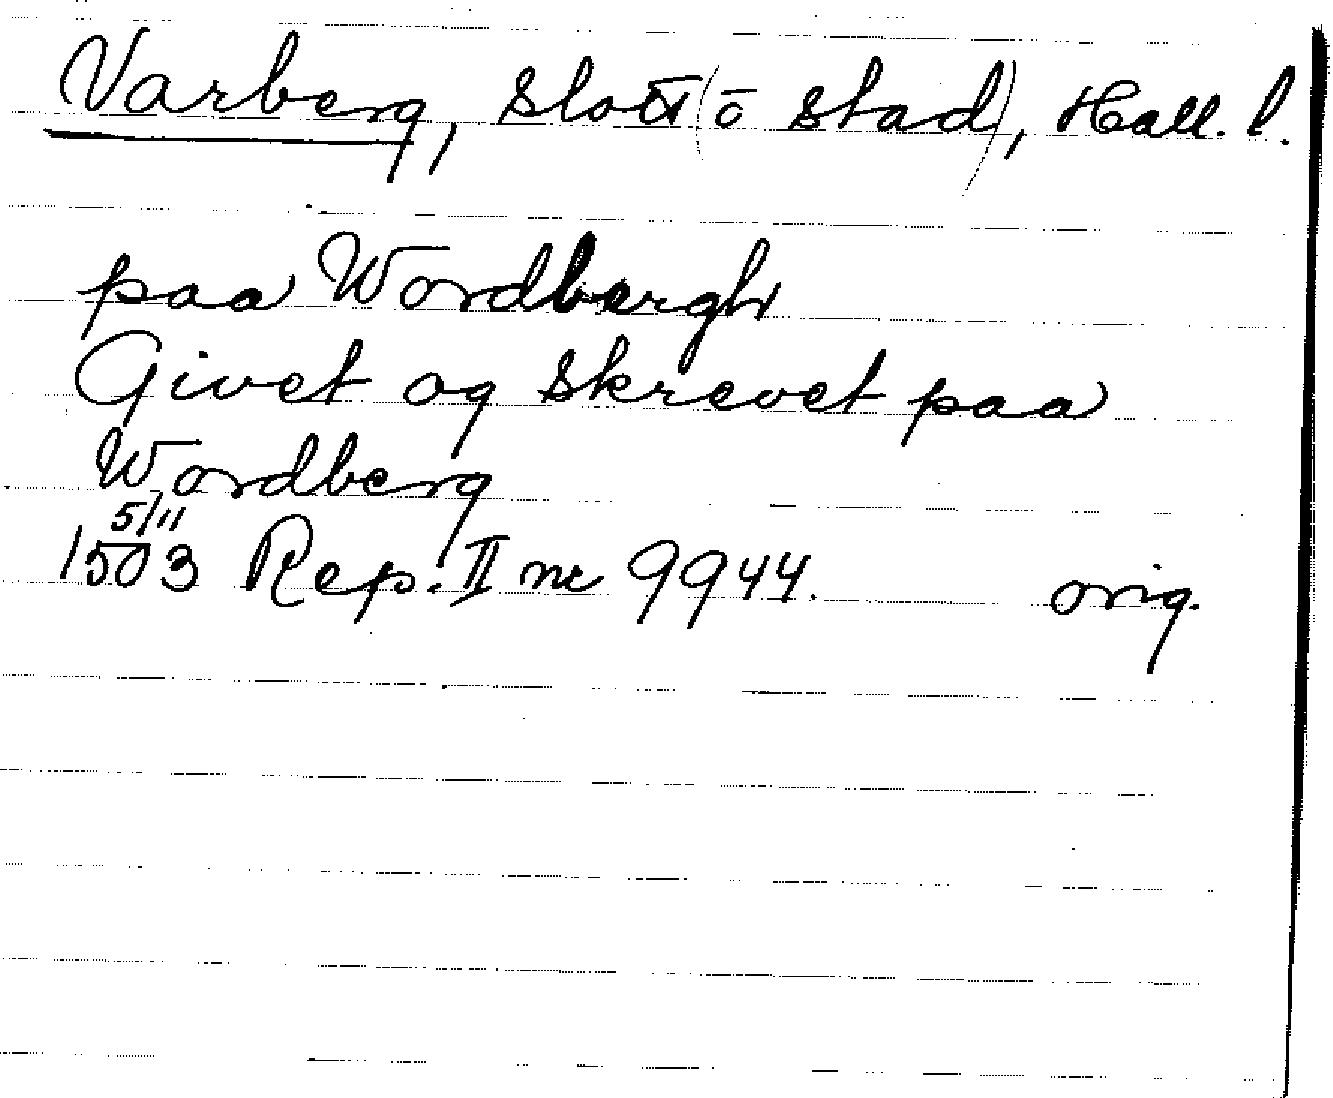 Varberg, Slott (o stad), Hall. l.
paa Wordbergh
Givet og skrevet paa
Wordberg
5/11
1503 Rep. II nr 9944. orig.